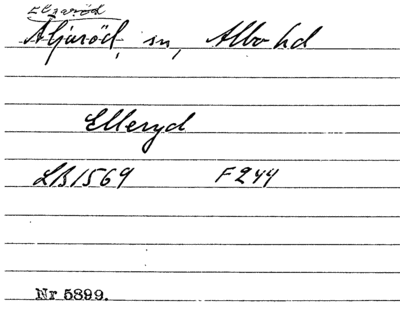 Eljaröd
Äljaröd, sn, Albo hd
Elleryd
LB1569 F244
Nr 5899.